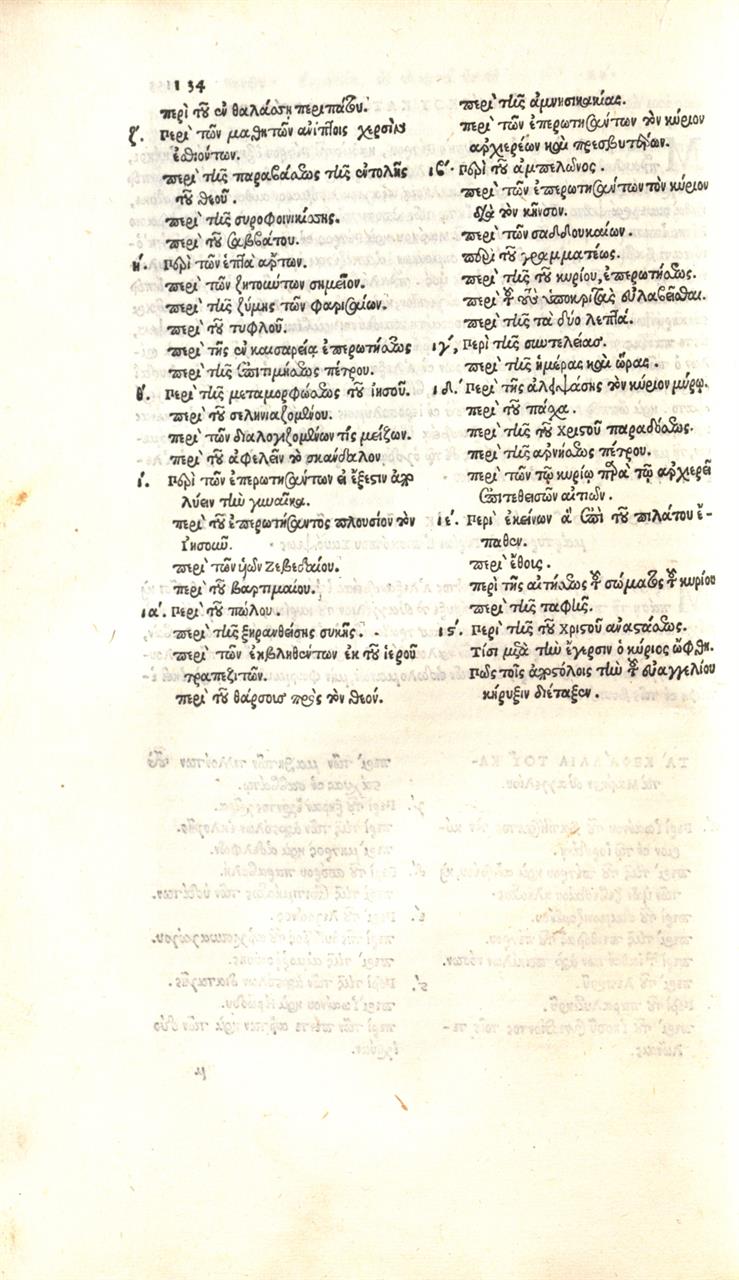 134
περὶ τοῦ ἐν θαλάσσῃ περιπάτου.
ζ. Περὶ τῶν μαθητῶν ἀνίπτοις χερσὶν
ἐσθιόντων.
περὶ τῆς παραβάσεως τῆς ἐντολῆς
τοῦ θεοῦ.
περὶ τῆς συροφοινικίσσης.
περὶ τοῦ σαββάτου.
η. Περὶ τῶν ἑπτὰ ἄρτων.
περὶ τῶν ζητούντων σημεῖον.
περὶ τῆς ζύμης τῶν φαρισαίων.
περὶ τοῦ τυφλοῦ.
περὶ τῆς ἐν καισαρείᾳ ἐπερωτήσεως
περὶ τῆς ἐπιτιμήσεως πέτρου.
θ. Περὶ τῆς μεταμορφώσεως τοῦ ἰησοῦ.
περὶ τοῦ σεληνιαζομένου.
περὶ τῶν διαλογιζομένων τίς μείζων.
περὶ τοῦ ἀφελεῖν τὸ σκάνδαλον
ι. Περὶ τῶν ἐπερωτησάντων εἰ ἔξεστιν ἀπο
λύειν τὴν γυναῖκα.
περὶ τοῦ ἐπερωτήσαντος πλουσίου τὸν
Ἰησοῦν.
περὶ τῶν υἱῶν Ζεβεδαίου.
περὶ τοῦ Βαρτιμαίου.
ια. Περὶ τοῦ πώλου.
περὶ τῆς ξηρανθείσης συκῆς.
περὶ τῶν ἐκβληθέντων ἐκ τοῦ ἱεροῦ
τραπεζιτῶν.
περὶ τοῦ θάρσους πρὸς τὸν θεόν.
περὶ τῆς ἀμνησικακίας.
περὶ τῶν ἐπερωτησάντων τὸν κύριον
ἀρχιερέων καὶ πρεσβυτέρων.
ιβ. Περὶ τοῦ ἀμπελῶνος.
περὶ τῶν ἐπερωτησάντων τὸν κύριον
διὰ τὸν κῆνσον.
περὶ τῶν σαδδουκαίων.
περὶ τοῦ γραμματέως.
περὶ τῆς τοῦ κυρίου, ἐπερωτήσεως.
περὶ τοῦ τοὺς ὑποκριτὰς εὐλαβεῖσθαι.
περὶ τῆς τὰ δύο λεπτά.
ιγ, Περὶ τῆς συντελείας.
περὶ τῆς ἡμέρας καὶ ὥρας.
ιδ. Περὶ τῆς ἀλειψάσης τὸν κύριον μύρῳ.
περὶ τοῦ πάσχα.
περὶ τῆς τοῦ Χριστοῦ παραδόσεως.
περὶ τῆς ἀρνήσεως πέτρου.
περὶ τῶν τῷ κυρίῳ παρὰ τῷ ἀρχιερεῖ
ἐπιτεθεισῶν αἰτιῶν.
ιε. Περὶ ἐκείνων ἃ ἐπὶ τοῦ πιλάτου ἔ-
παθεν.
περὶ ἔθους.
περὶ τῆς αἰτήσεως τοῦ σώματος τοῦ κυρίου
περὶ τῆς ταφῆς.
ις. Περὶ τῆς τοῦ Χριστοῦ ἀναστάσεως.
Τίσι μετὰ τὴν ἔγερσιν ὁ κύριος ὤφθη.
Πῶς τοῖς ἀποστόλοις τὴν τοῦ εὐαγγελίου
κήρυξιν διέταξεν.